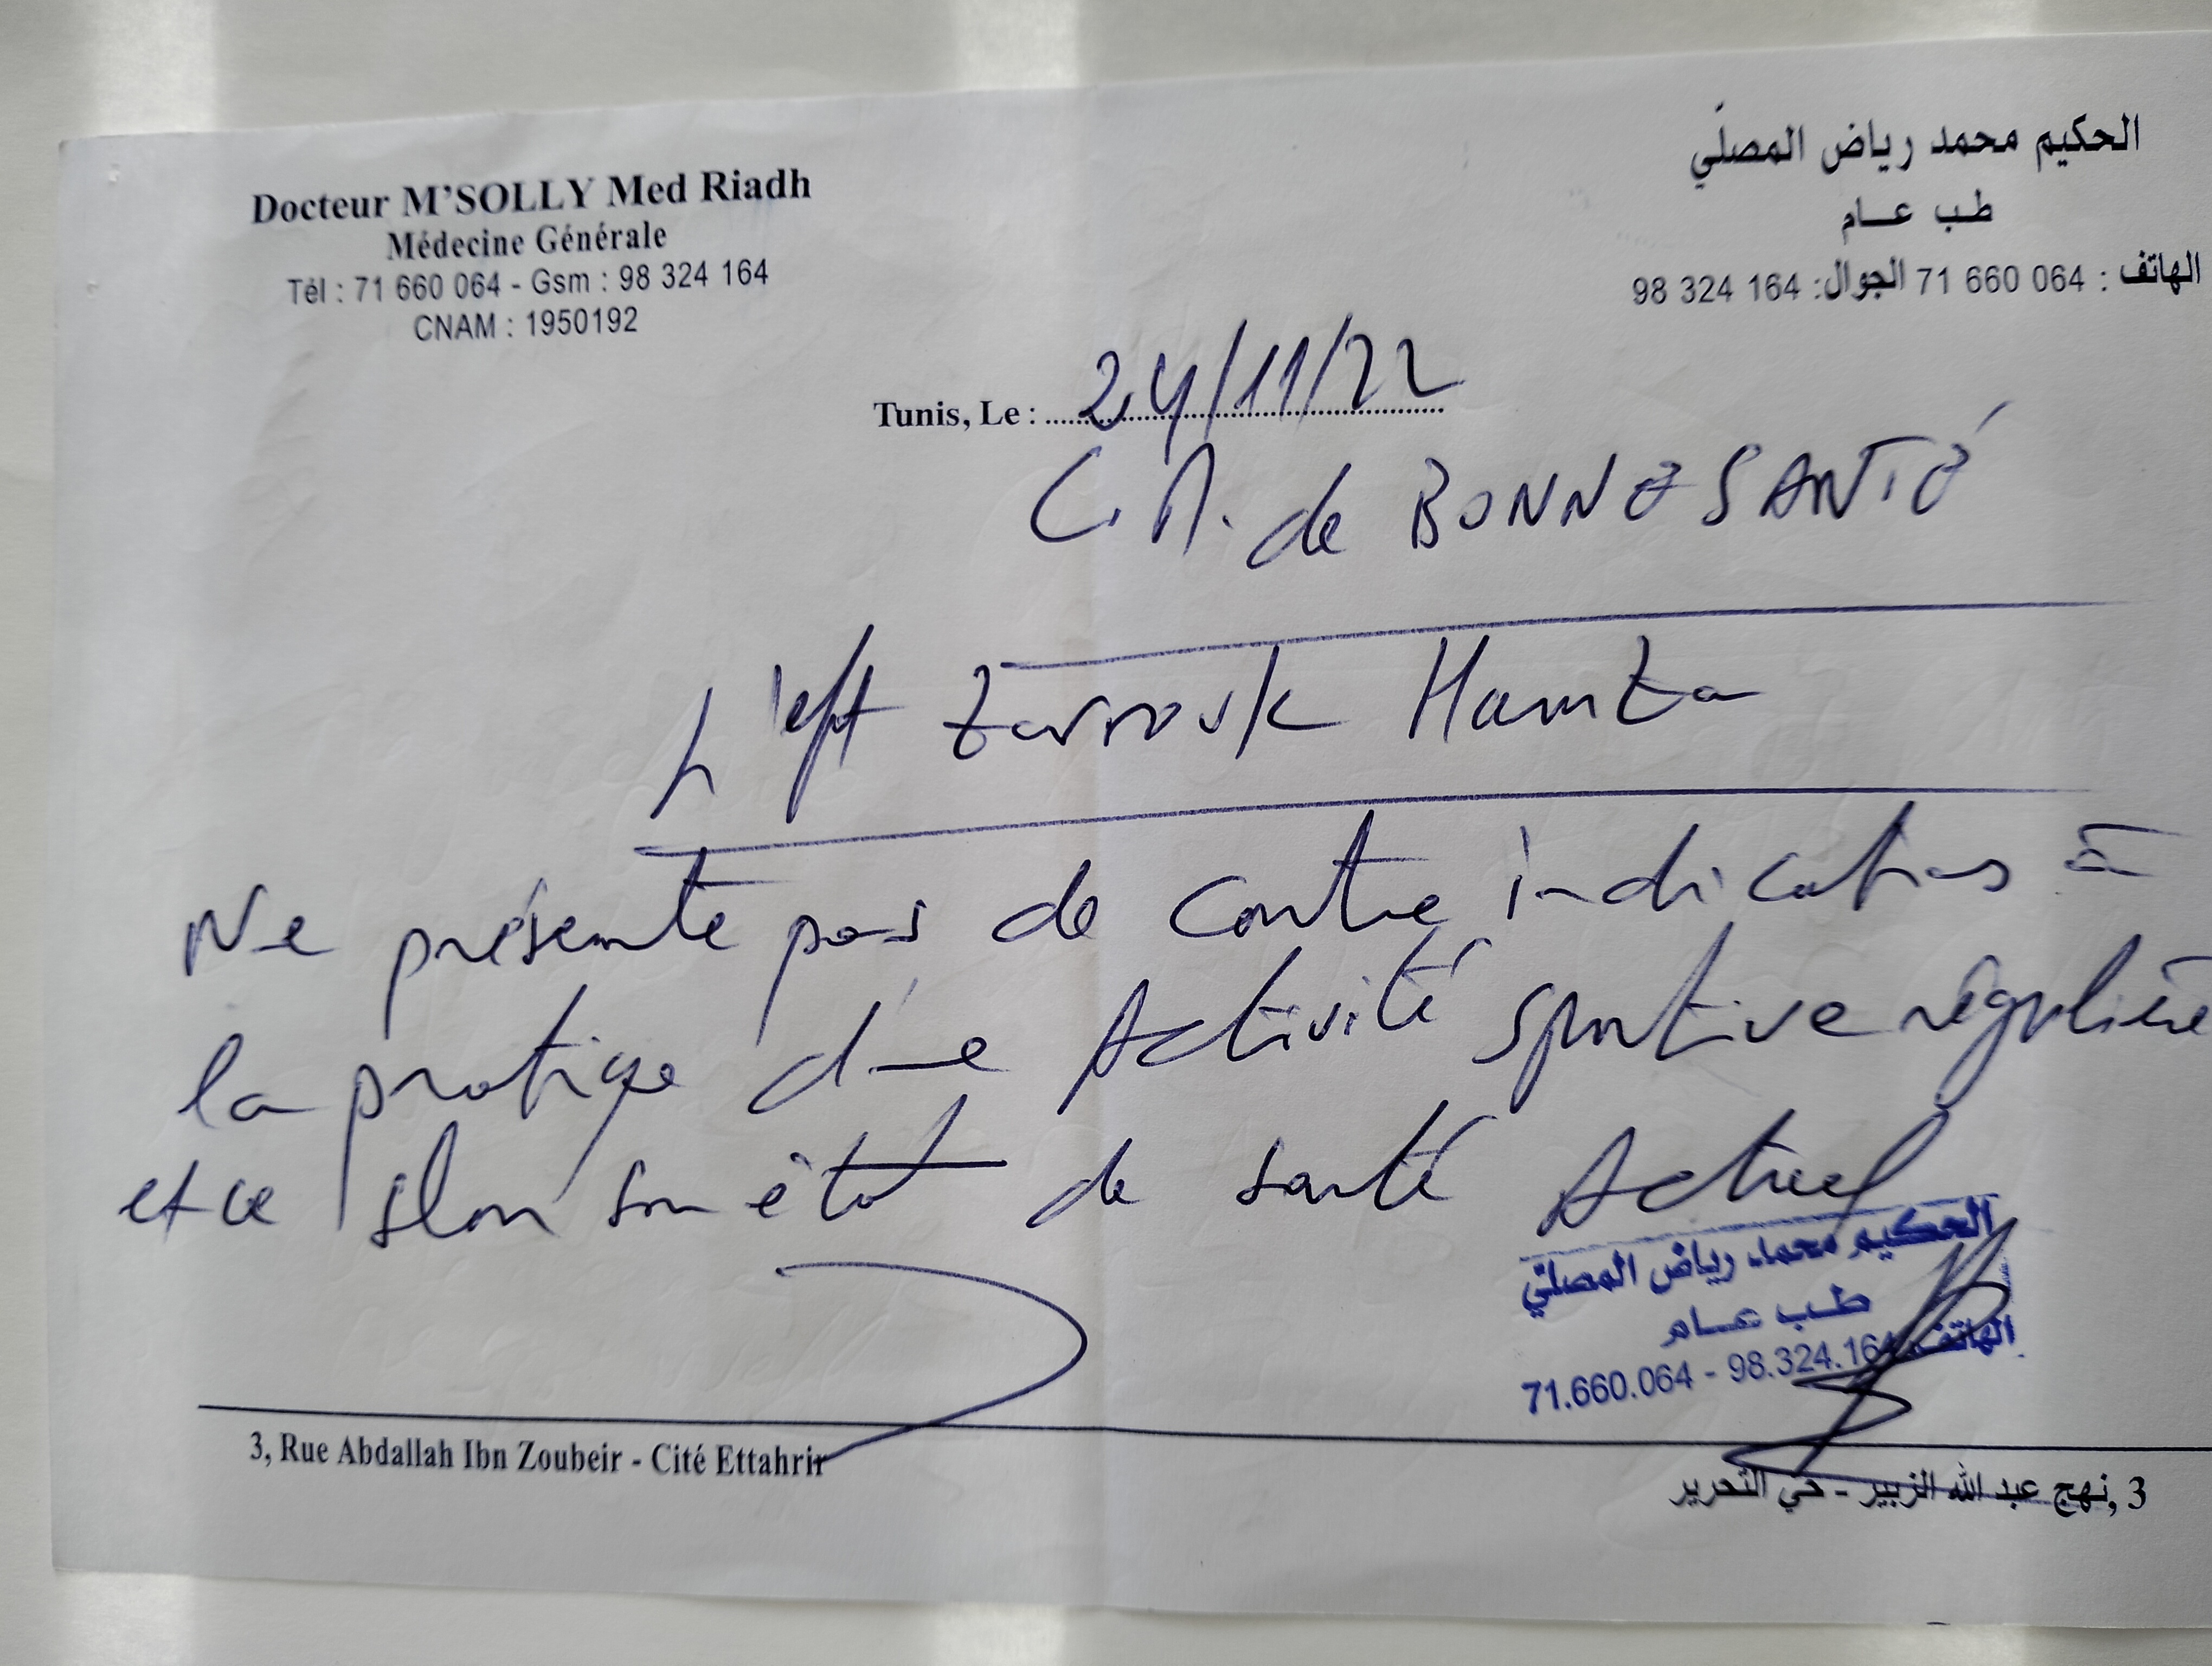 Docteur M'SOLLY Med Riadh
Médecine Générale
Tél : 71 660 064 - Gsm : 98 324 164
CNAM : 1950192
الحكيم محمد رياض المصلّي
طب عـــام
الهاتف : 71 660 064 الجوال: 98 324 164
Tunis, Le : 24/11/22
C. M. de BONNE SANTÉ
Zarrouk Hamza
Ne présente pas de contre indications à
la pratique d'une Activité sportive régulière
et ce selon son état de santé Actuel
الحكيم محمد رياض المصلّي
طـب عـــام
الهاتف 71.660.064 - 98.324.164
3, Rue Abdallah Ibn Zoubeir - Cité Ettahrir
3, نهج عبد الله الزبير - حي التحرير